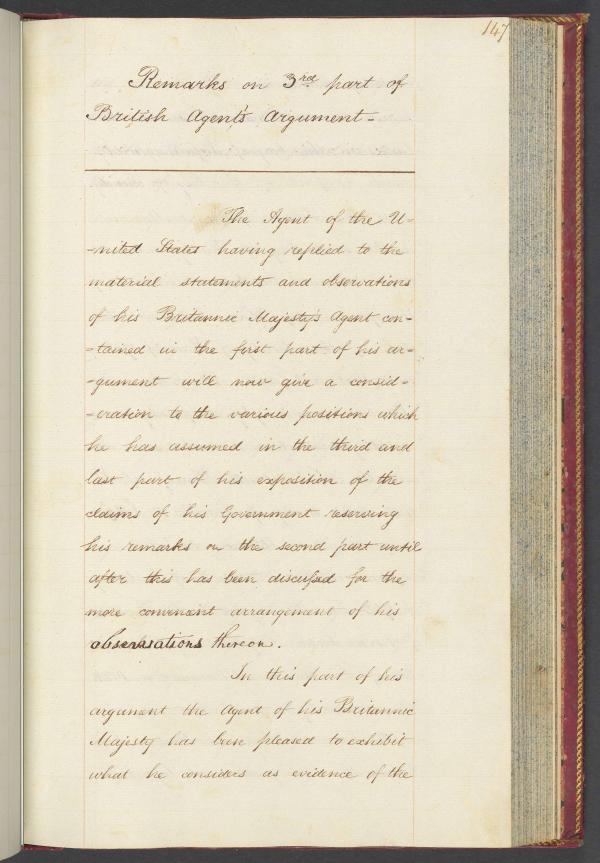 147
Remarks on 3rd part of
British Agent's argument-
The Agent of the U-
-nited States having replied to the
material statements and observations
of his Britannic Majesty's Agent con-
-tained in the first part of his ar-
-gument will now give a consid-
-eration to the various positions which
he has assumed in the third and
last part of his exposition of the
claims of his Government reserving
his remarks on the second part until
after this has been discussed for the
more convenient arrangement of his
observations thereon.
In this part of his
argument the Agent of his Britannic
Majesty has been pleased to exhibit
what he considers as evidence of the